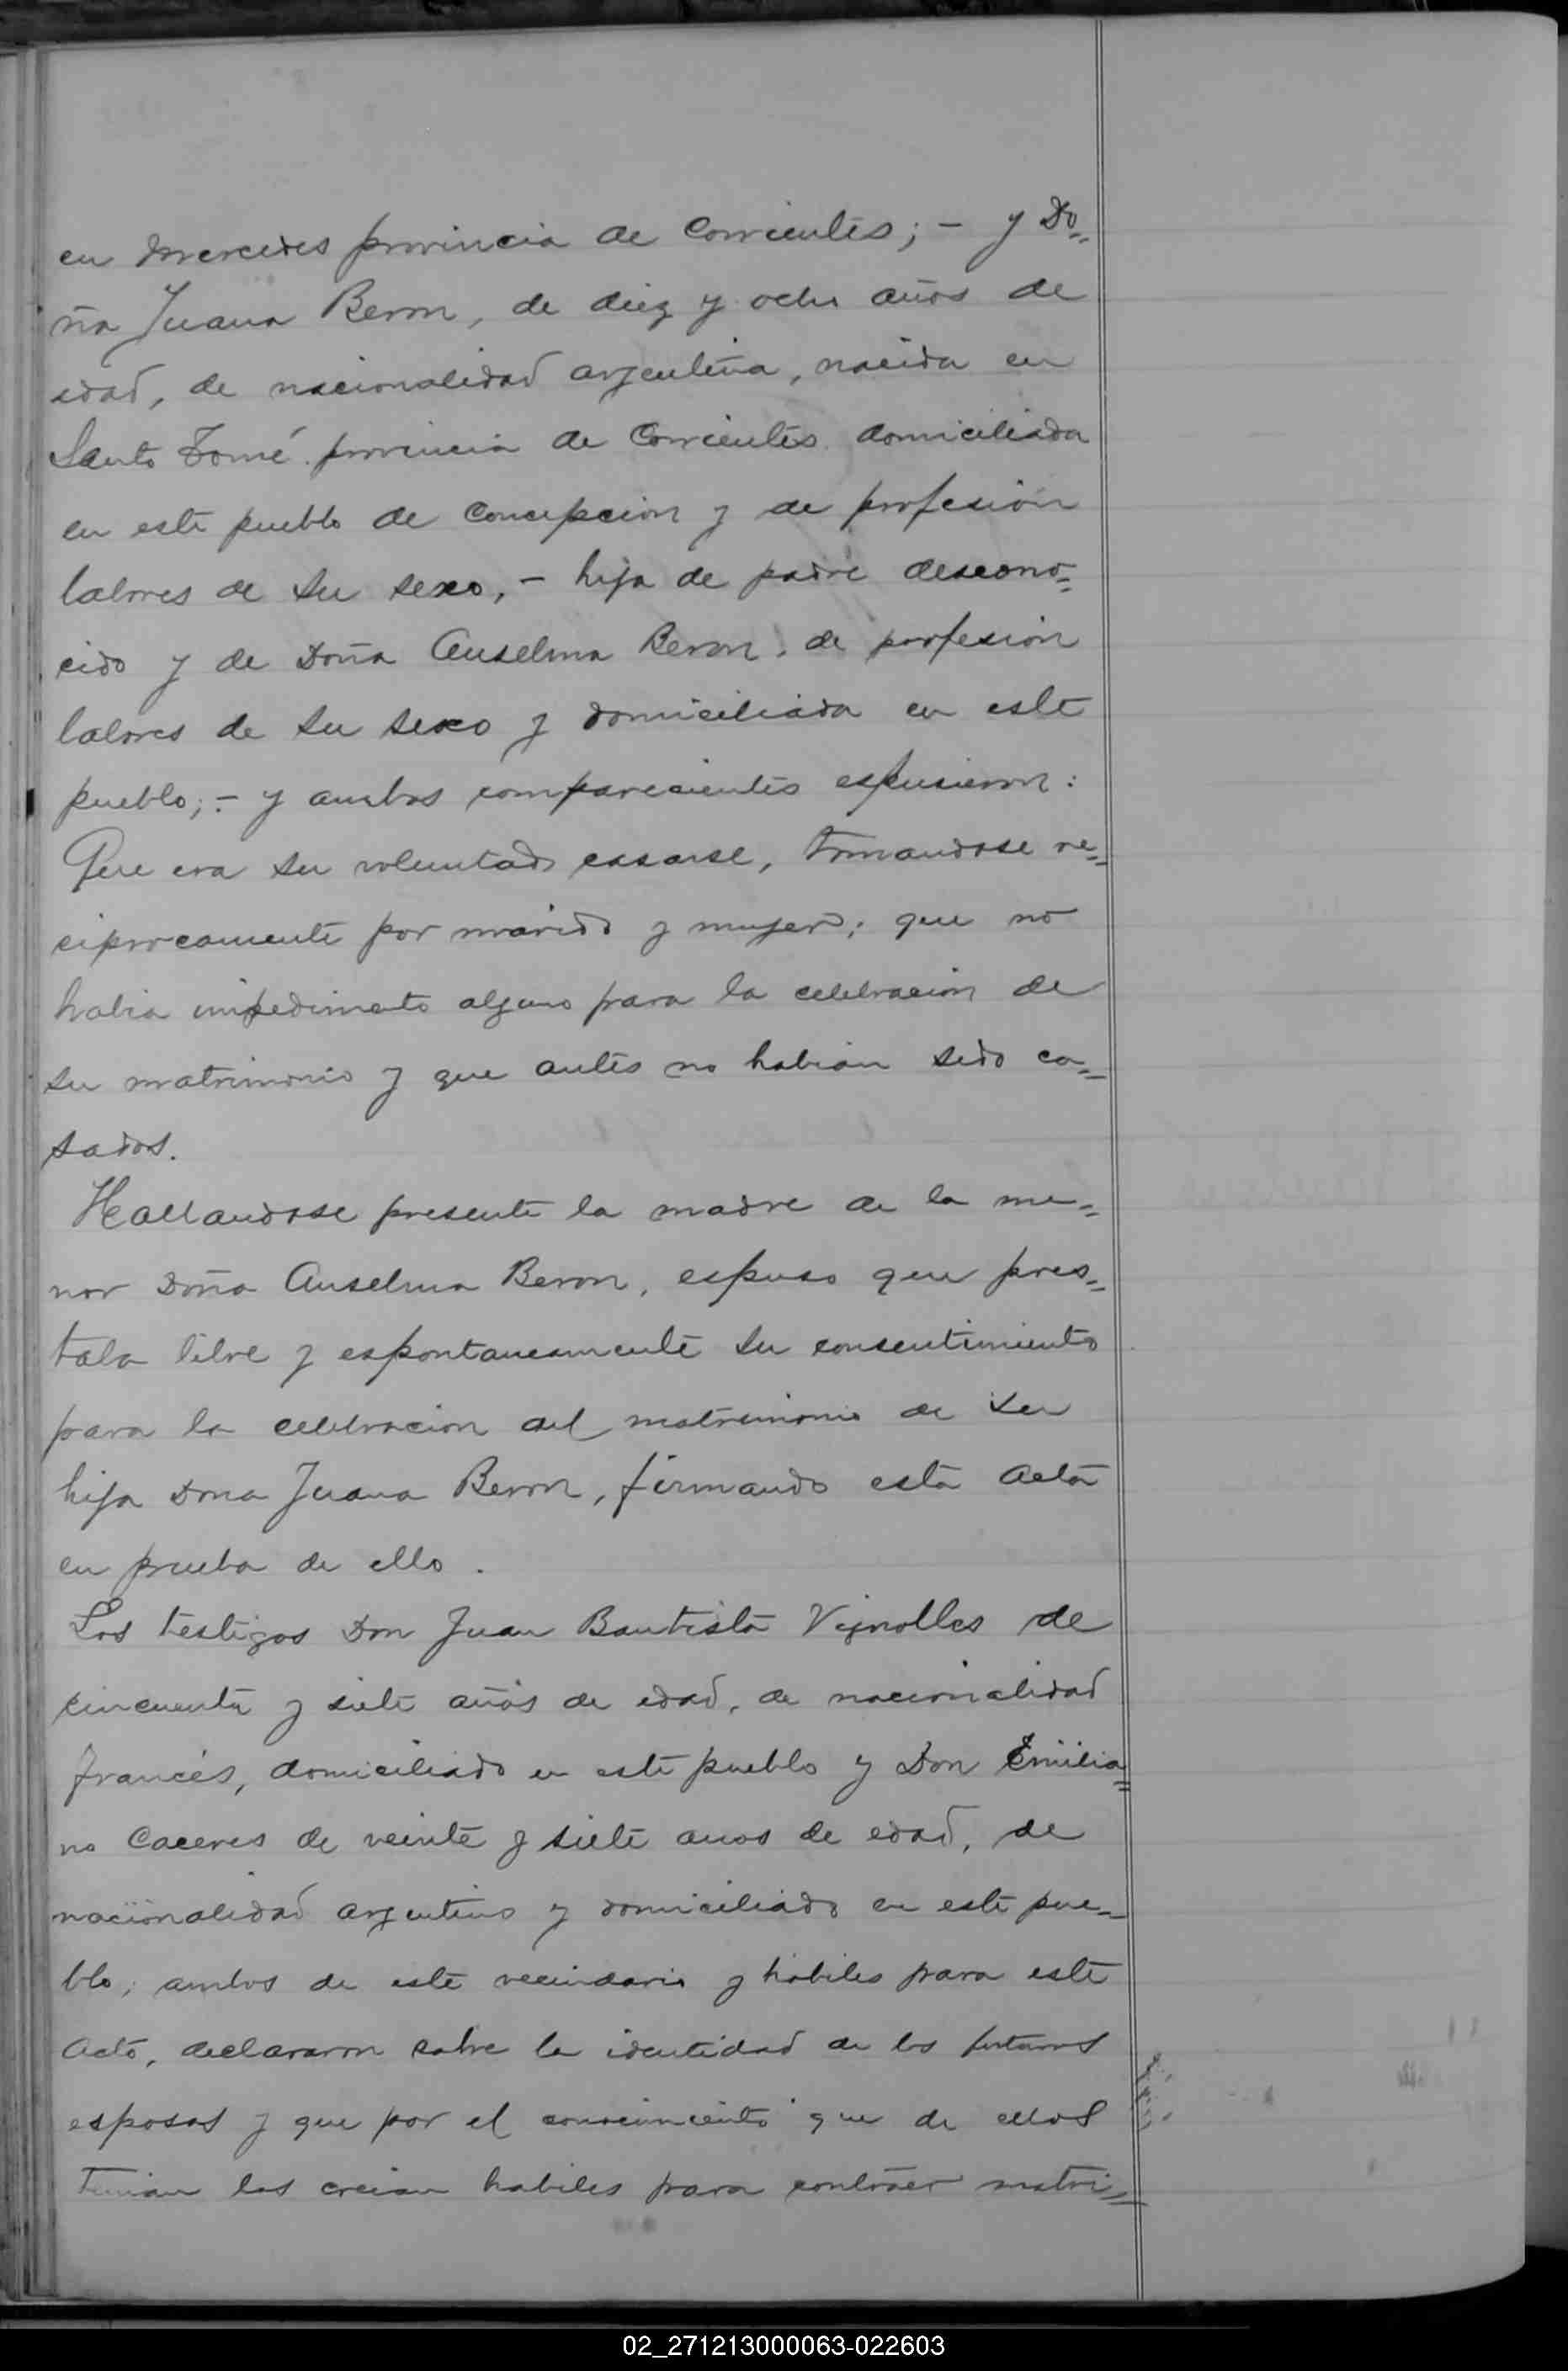 en Mercedes provincia de Corrientes; - y Do=
ña Juana Beron, de diez y ocho años de
edad, de nacionalidad argentina, nacida en
Santo Tomé provincia de Corrientes domiciliada
en este pueblo de Concepcion y de profesión
labores de su sexo, - hija de padre descono=
cido y de Doña Anselma Beron, de profesión
labores de su sexo y domiciliada en este
pueblo; - y ambos comparecientes espusieron:
Que era su voluntad casarse, tomandose re=
ciprocamente por marido y mujer; que no
habia impedimento alguno para la celebracion de
su matrimonio y que antes no habian sido ca=
sados.
Hallandose presente la madre de la me=
nor Doña Anselma Beron, espuso que pres=
taba libre y espontaneamente su consentimiento
para la celebracion del matrimonio de su
hija Dona Juana Beron, firmando esta acta
en prueba de ello.
Los testigos Don Juan Bautista Vignolles de
cincuenta y siete años de edad, de nacionalidad
francés, domiciliado en este pueblo y Don Emilia=
no Caceres de veinte y siete anos de edad, de
nacionalidad argentino y domiciliado en este pue=
blo; ambos de este vecindario y hábiles para este
acto, declararon sobre la identidad de los futuros
esposos y que por el conocimiento que de ellos
tenian los creian habiles para contraer matri=
02_271213000063-022603